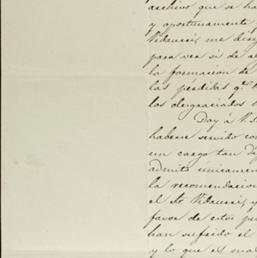 archivo que se ha
y oportunamente
Vidaurri, me di
para ver si de a
la formacion de
las perdidas qe
los desgraciados
Doy á V.
haberse servido con
un cargo tan
admito unicamen
la recomendacion
el Sr Vidaurri, y
favor de estos pu
han sufrido el
y lo que es mas